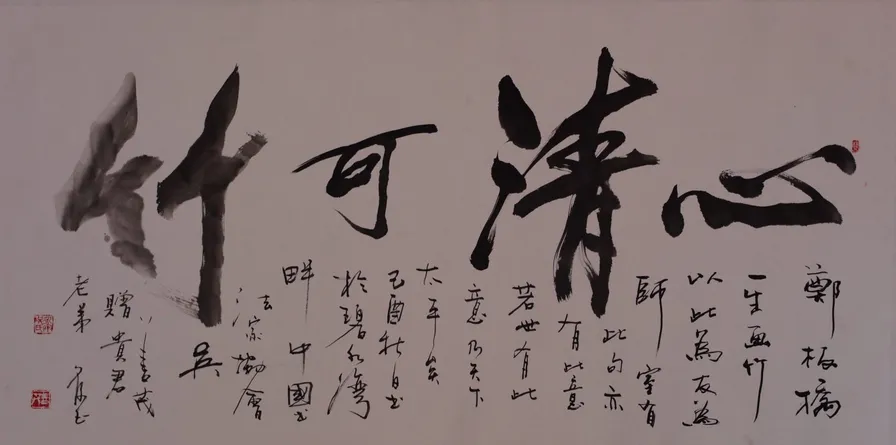 心清可竹
鄭板橋
一生画竹
以此為友為
師 室有
此句亦
有此意
若世有此
意乃天下
太平矣
己酉秋日书
於碧水湾
畔 中國书
法家協會
吳
贈貴君
老弟